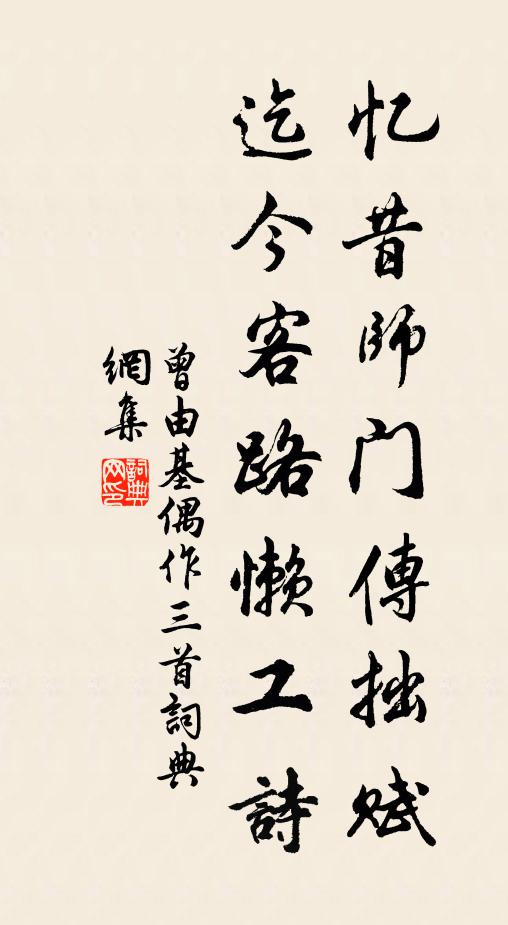 忆昔師门傳拙赋
迄今客路懒工詩
曾由基偶作三首詞典
網集
詞典
网印